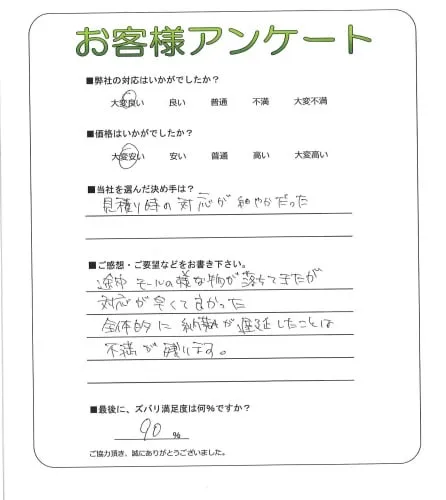 お客様アンケート
■弊社の対応はいかがでしたか?
大変良い 良い 普通 不満 大変不満
■価格はいかがでしたか?
大変安い 安い 普通 高い 大変高い
■当社を選んだ決め手は?
見積り時の対応が細やかだった
■ご感想・ご要望などをお書き下さい。
途中モールの様な物が落ちてきたが
対応が早くて良かった
全体的に納期が遅延したことは
不満が残ります。
■最後に、ズバリ満足度は何%ですか?
90 %
ご協力頂き、誠にありがとうございました。